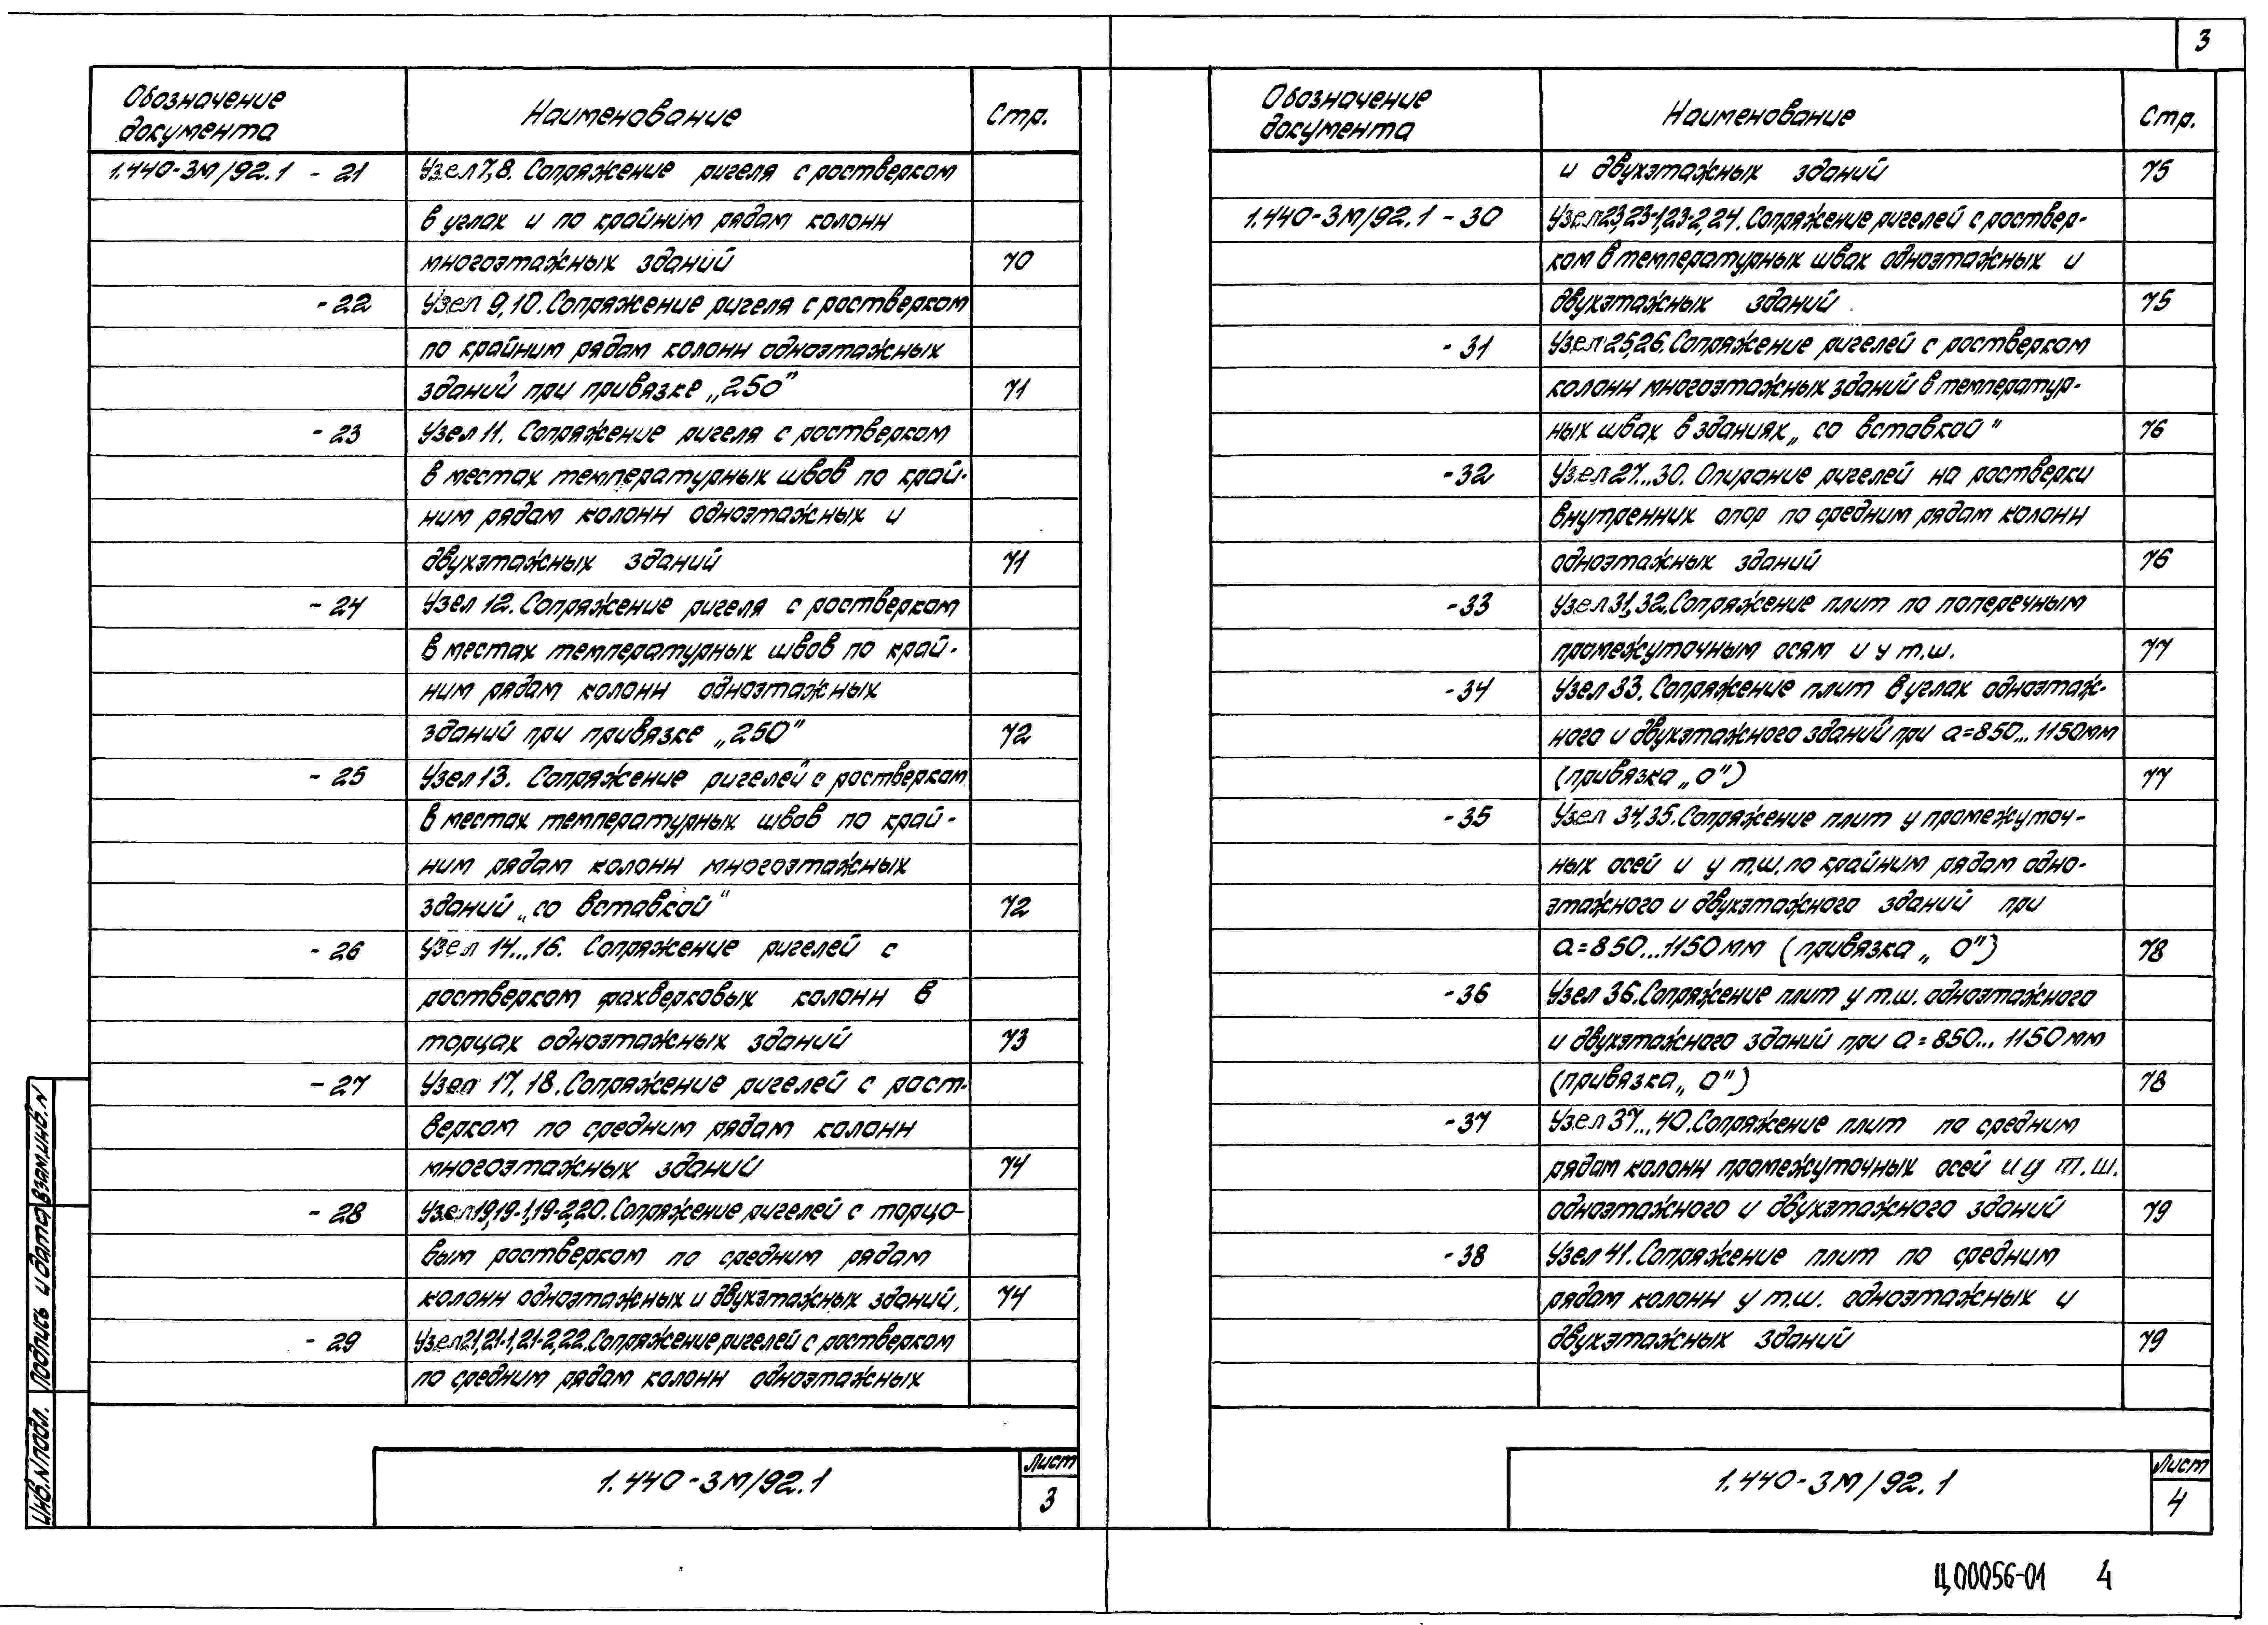 3
Обозначение документа Наименование Стр.
1.440-3м/92.1 - 21 Узел 7,8. Сопряжение ригеля с ростверком
в углах и по крайним рядам колонн
многоэтажных зданий 70
- 22 Узел 9,10. Сопряжение ригеля с ростверком
по крайним рядам колонн одноэтажных
зданий при привязке „250” 71
- 23 Узел 11. Сопряжение ригеля с ростверком
в местах температурных швов по край-
ним рядам колонн одноэтажных и
двухэтажных зданий 71
- 24 Узел 12. Сопряжение ригеля с ростверком
в местах температурных швов по край-
ним рядам колонн одноэтажных
зданий при привязке „250” 72
- 25 Узел 13. Сопряжение ригелей с ростверком
в местах температурных швов по край-
ним рядам колонн многоэтажных
зданий „со вставкой” 72
- 26 Узел 14...16. Сопряжение ригелей с
ростверком фахверковых колонн в
торцах одноэтажных зданий 73
- 27 Узел 17, 18. Сопряжение ригелей с рост-
верком по средним рядам колонн
многоэтажных зданий 74
- 28 Узел 19,19-1,19-2,20. Сопряжение ригелей с торцо-
вым ростверком по средним рядам
колонн одноэтажных и двухэтажных зданий. 74
- 29 Узел 21,21-1,21-2,22. Сопряжение ригелей с ростверком
по средним рядам колонн одноэтажных
1.440-3м/92.1
Лист
3
Инв.N подл. Подпись и дата Взам.инв.N
Обозначение документа Наименование Стр.
и двухэтажных зданий 75
1.440-3м/92.1 - 30 Узел 23,23-1,23-2,24. Сопряжение ригелей с роствер-
ком в температурных швах одноэтажных и
двухэтажных зданий 75
- 31 Узел 25,26. Сопряжение ригелей с ростверком
колонн многоэтажных зданий в температур-
ных швах в зданиях „со вставкой” 76
- 32 Узел 27...30. Опирание ригелей на ростверки
внутренних опор по средним рядам колонн
одноэтажных зданий 76
- 33 Узел 31,32. Сопряжение плит по поперечным
промежуточным осям и у т.ш. 77
- 34 Узел 33. Сопряжение плит в углах одноэтаж-
ного и двухэтажного зданий при а=850...1150мм
(привязка „0”) 77
- 35 Узел 34,35. Сопряжение плит у промежуточ-
ных осей и у т.ш. по крайним рядам одно-
этажного и двухэтажного зданий при
а=850...1150мм (привязка „0”) 78
- 36 Узел 36. Сопряжение плит у т.ш. одноэтажного
и двухэтажного зданий при а=850...1150мм
(привязка „0”) 78
- 37 Узел 37...40. Сопряжение плит по средним
рядам колонн промежуточных осей и у т.ш.
одноэтажного и двухэтажного зданий 79
- 38 Узел 41. Сопряжение плит по средним
рядам колонн у т.ш. одноэтажных и
двухэтажных зданий 79
1.440-3м/92.1
Лист
4
Ц00056-01 4